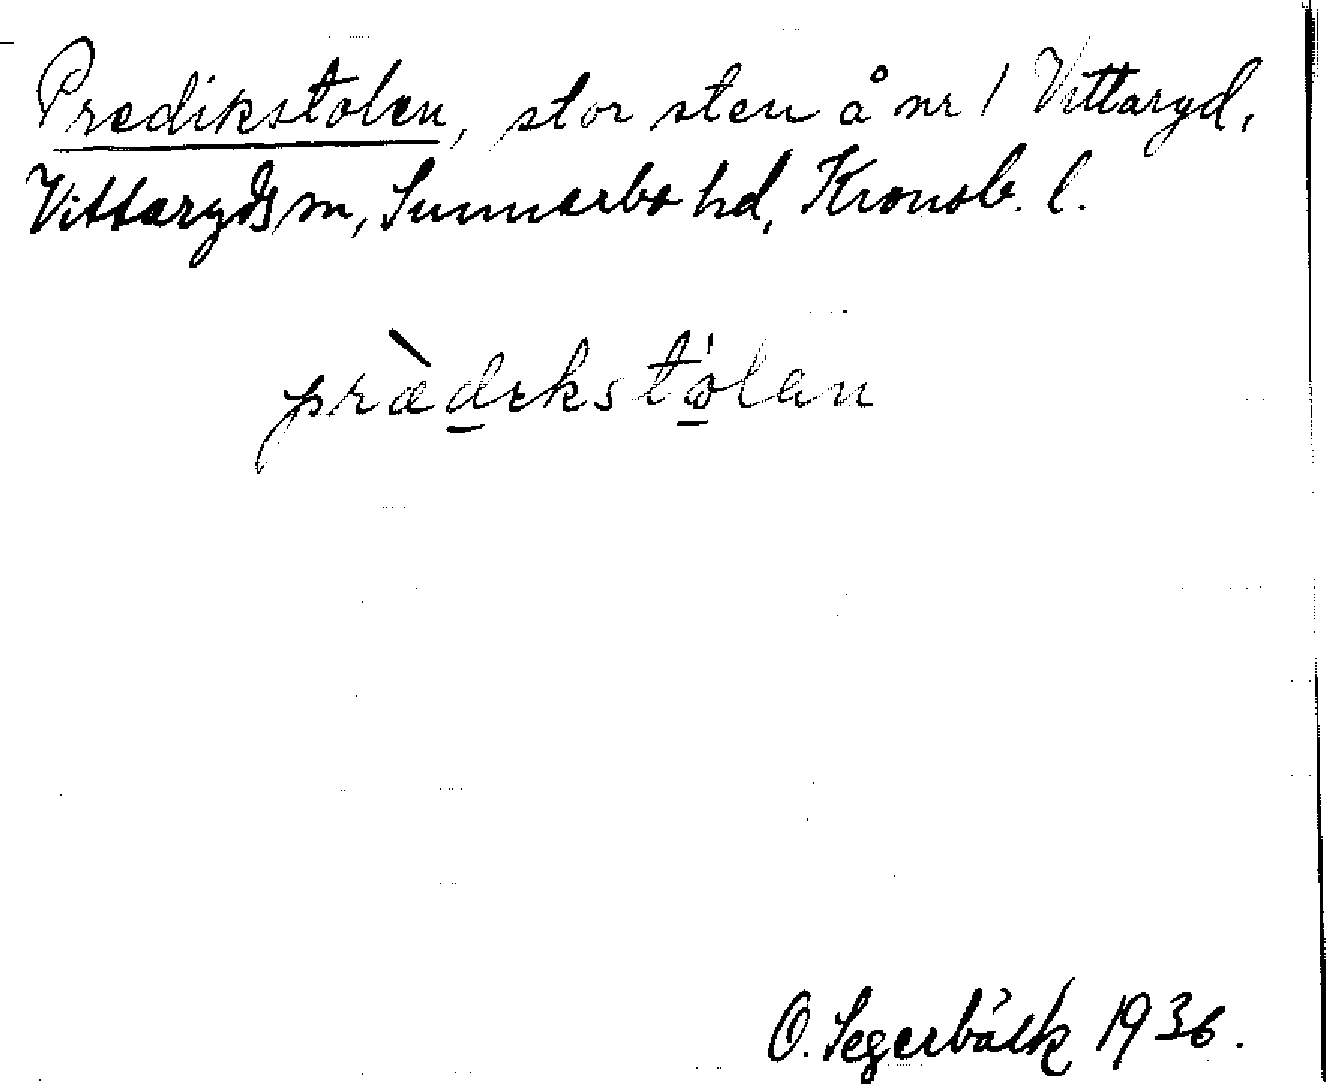 Predikstolen, stor sten å nr 1 Vittaryd,
Vittaryds sn, Sunnerbo hd, Kronob. l.
prædıkstolan
O. Segerbäck 1936.